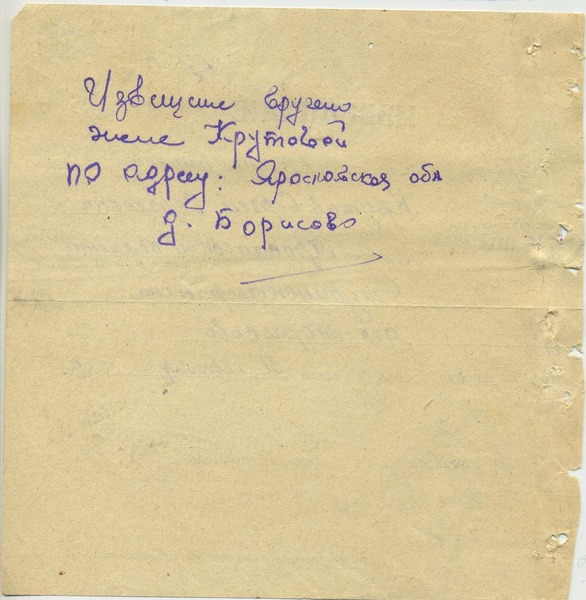 Извещение вручено
жене Крутовой
по адресу: Ярославская обл
д. Борисово